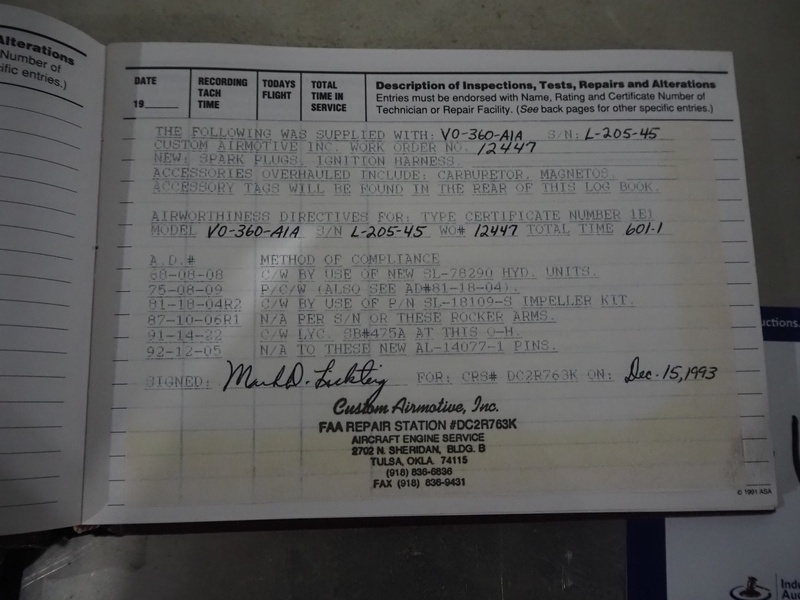 Alterations
Number of
ific entries.)
DATE
19
RECORDING
TACH
TIME
TODAYS
FLIGHT
TOTAL
TIME IN
SERVICE
Description of Inspections, Tests, Repairs and Alterations
Entries must be endorsed with Name, Rating and Certificate Number of
Technician or Repair Facility. (See back pages for other specific entries.)
THE FOLLOWING WAS SUPPLIED WITH: VO-360-A1A S/N: L-205-45
CUSTOM AIRMOTIVE INC. WORK ORDER NO. 12447
NEW: SPARK PLUGS, IGNITION HARNESS.
ACCESSORIES OVERHAULED INCLUDE: CARBURETOR, MAGNETOS.
ACCESSORY TAGS WILL BE FOUND IN THE REAR OF THIS LOG BOOK.
AIRWORTHINESS DIRECTIVES FOR: TYPE CERTIFICATE NUMBER 1E1
MODEL VO-360-A1A S/N L-205-45 WO# 12447 TOTAL TIME 601.1
A.D.# METHOD OF COMPLIANCE
68-08-08 C/W BY USE OF NEW SL-78290 HYD. UNITS.
75-08-09 P/C/W (ALSO SEE AD#81-18-04).
81-18-04R2 C/W BY USE OF P/N SL-18109-S IMPELLER KIT.
87-10-06R1 N/A PER S/N OR THESE ROCKER ARMS.
91-14-22 C/W LYC. SB#475A AT THIS O-H.
92-12-05 N/A TO THESE NEW AL-14077-1 PINS.
SIGNED: Mark D. FOR: CRS# DC2R763K ON: Dec. 15, 1993
Custom Airmotive, Inc.
FAA REPAIR STATION #DC2R763K
AIRCRAFT ENGINE SERVICE
2702 N. SHERIDAN, BLDG. B
TULSA, OKLA. 74115
(918) 836-6836
FAX (918) 836-9431
© 1991 ASA
uctions.
Indu
Au